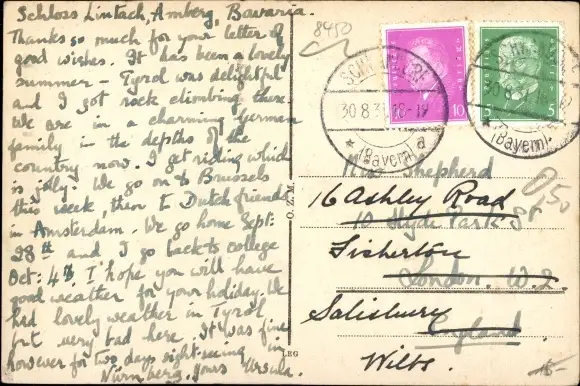 Schloss Lintach, Amberg, Bavaria.
Thanks so much for your letter of
good wishes. It has been a lovely
summer - Tyrol was delightful
and I got rock climbing there.
We are in a charming German
family in the depths of the
country now. I get riding which
is jolly. We go on to Brussels
this week, then to Dutch friends
in Amsterdam. We go home Sept:
28th and I go back to college
Oct: 4th. I hope you will have
good weather for your holiday. We
had lovely weather in Tyrol
but very bad here. It was fine
however for two days sight-seeing in
Nürnberg. Yours Ursula.
8450
30.8.3 18-19
(Bayern) a
10
30.8.3
(Bayern)
5
5
O.Z.M.
LEG
Shepherd
16 Ashley Road
10 Hyde Park St
Fisherton
London. W.2.
Salisbury
England
Wilts.
0,50
15-